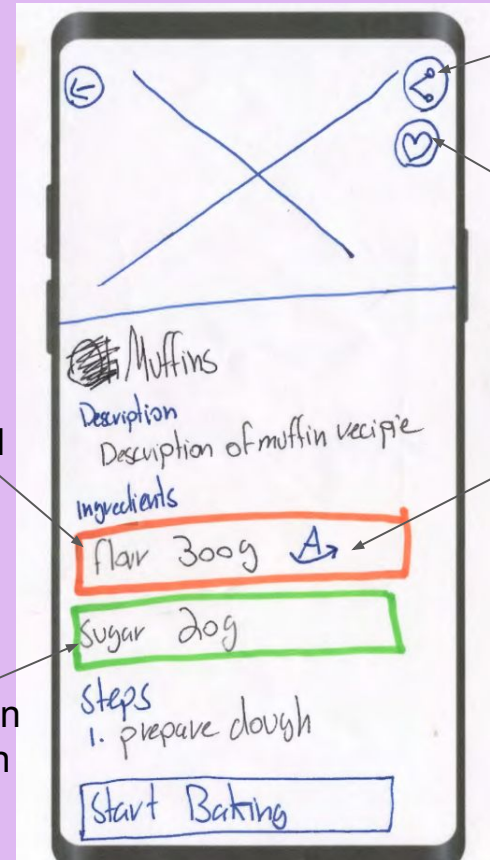 Muffins
Description
Description of muffin recipie
Ingredients
flour 300g A
sugar 20g
steps
1. prepare dough
Start Baking